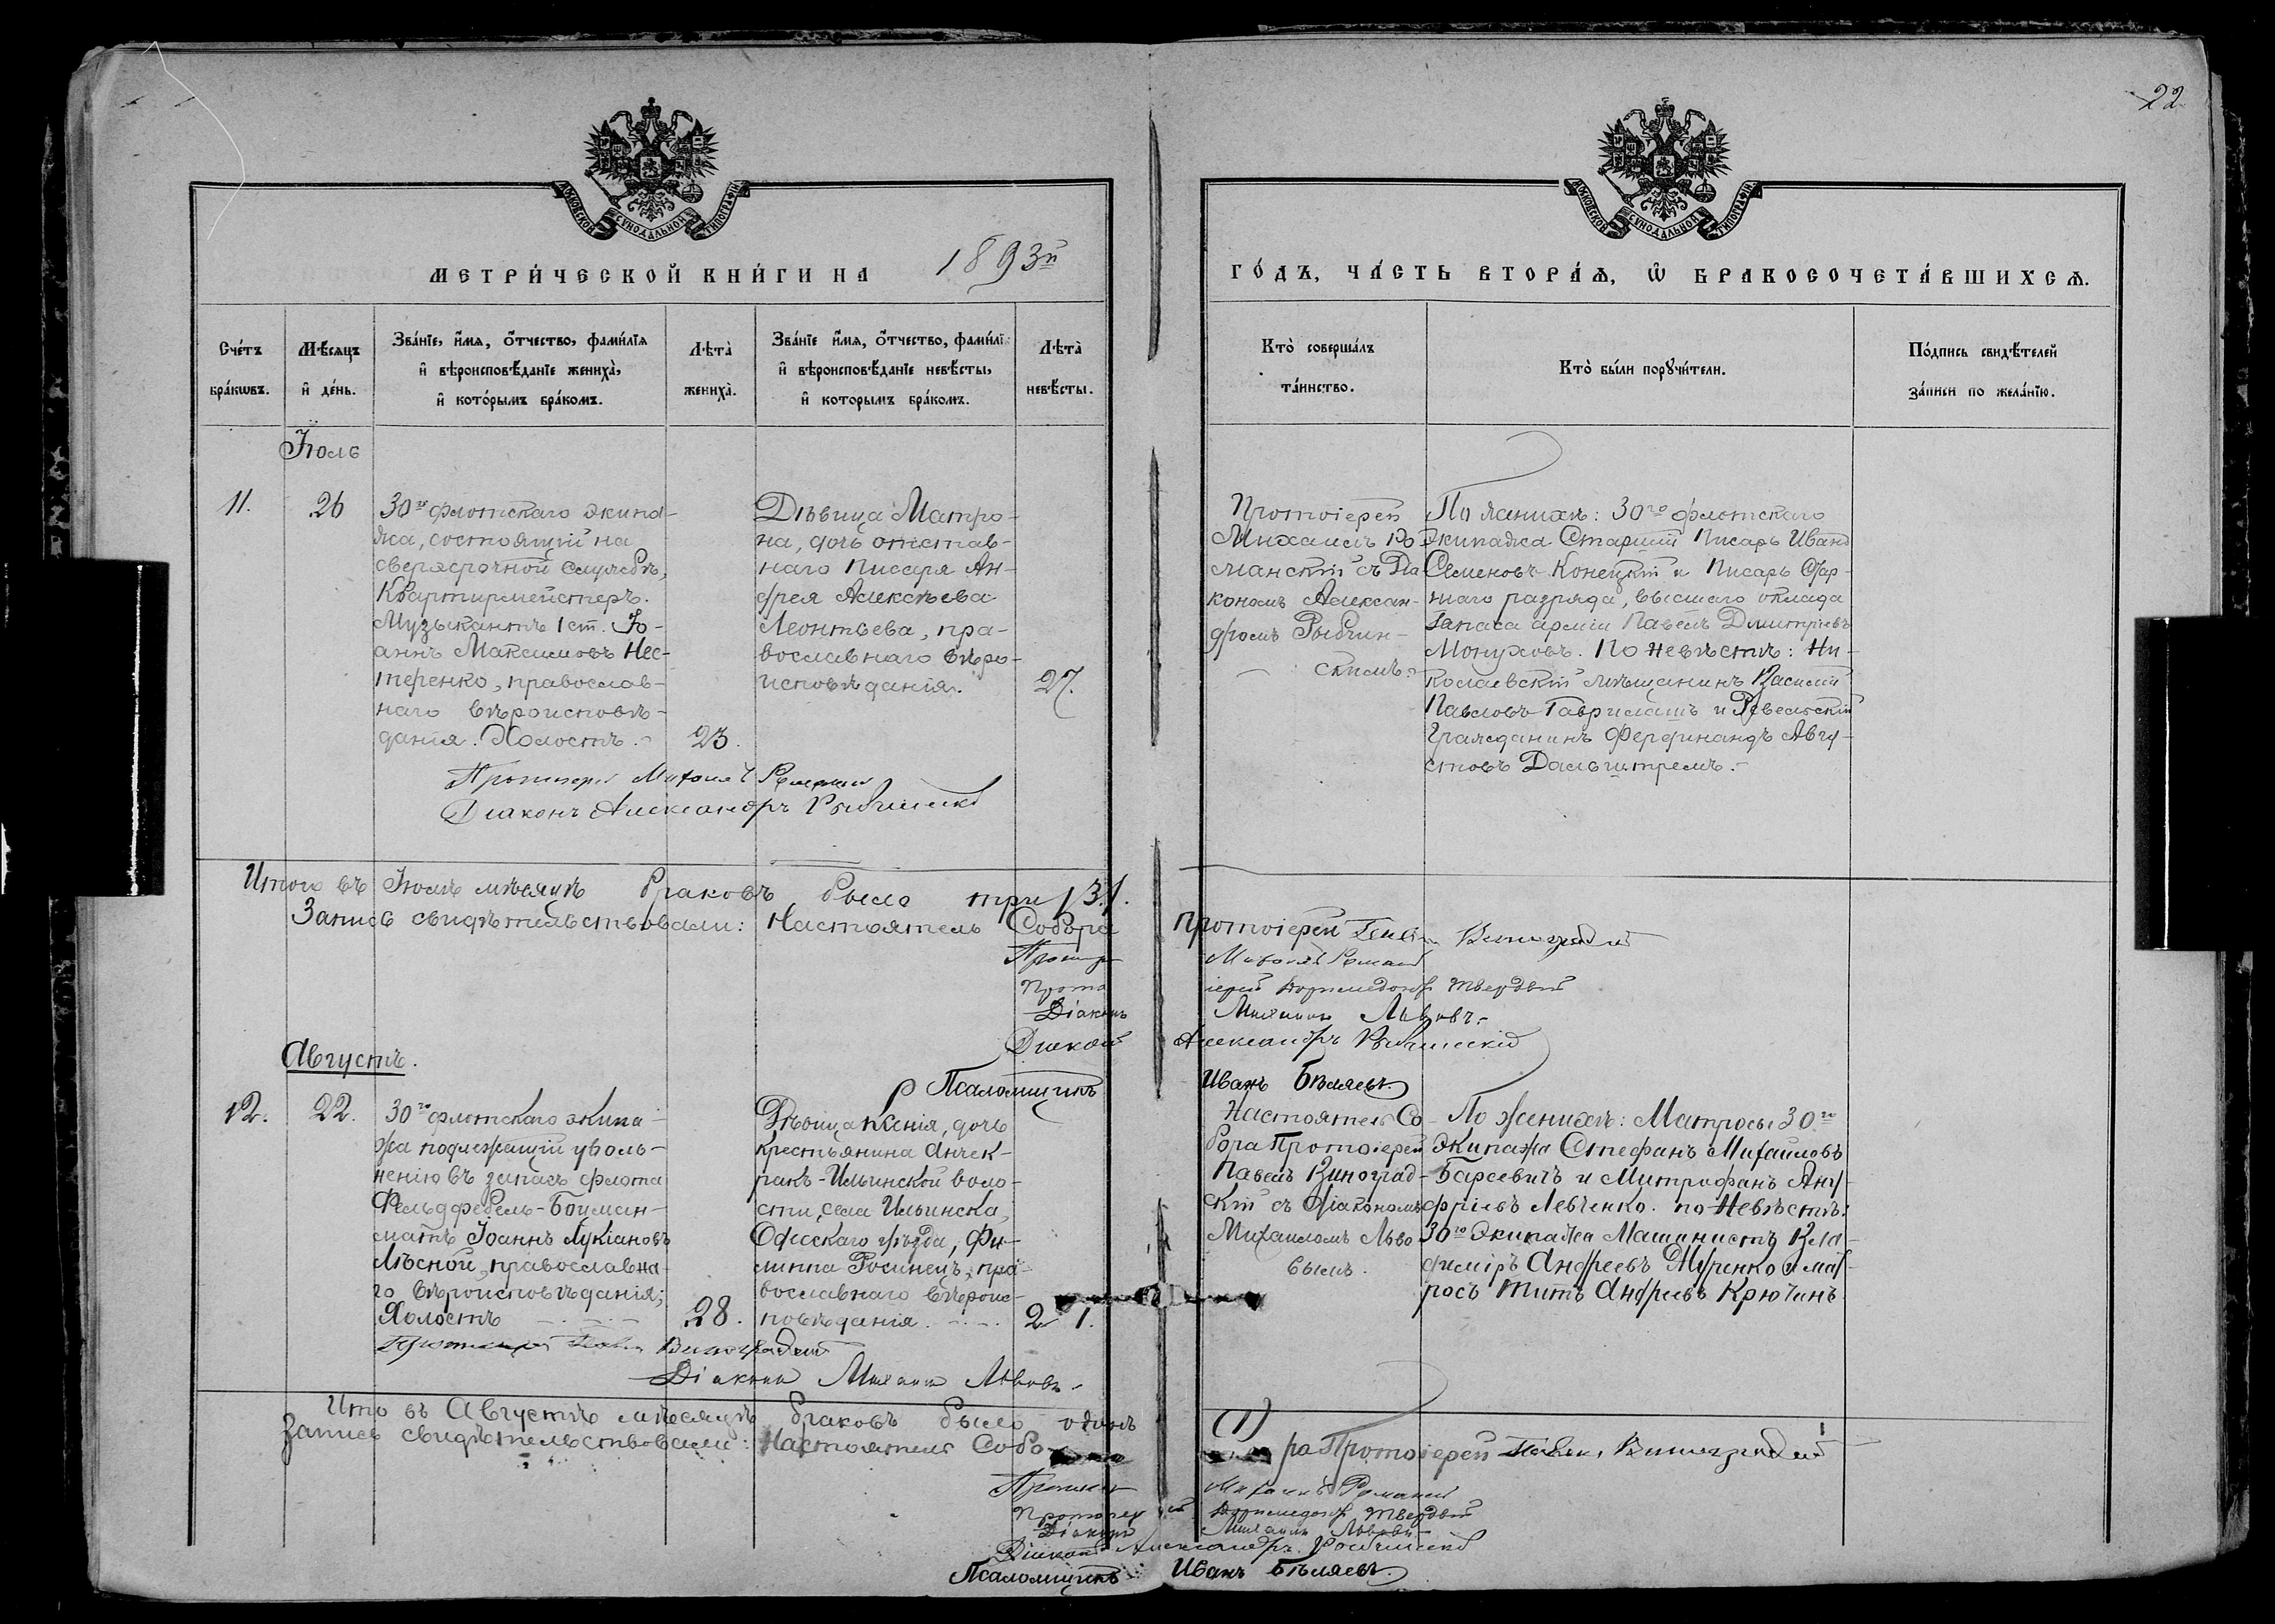 22
МОСКОВСКОЙ СУНОДАЛЬНОЙ ТИПОГРАФІИ
МОСКОВСКОЙ СУНОДАЛЬНОЙ ТИПОГРАФІИ
МЕТРИ́ЧЕСКОЙ КНИ́ГИ НА 1893й
ГО́ДЪ, ЧА́СТЬ ВТОРА́Ѧ, Ѽ БРАКОСОЧЕТА́ВШИХСѦ.
Сче́тъ бра́кѡвъ.
Мѣ́сѧцъ и҆ де́нь.
Зва́нїе, и҆́мѧ, ѻ҆́тчество, фами́лїѧ
и҆ вѣроисповѣ́данїе жениха̀,
и҆ кото́рымъ бра́комъ.
Лѣта̀ жениха̀.
Зва́нїе и҆́мѧ, ѻ҆́тчество, фами́лї
и҆ вѣроисповѣ́данїе невѣ́сты,
и҆ которымъ бра́комъ.
Лѣта̀ невѣ́сты.
Кто̀ соверша́лъ
та́инство.
Кто̀ бы́ли порꙋчи́тели.
По́дпись свидѣ́телей
за́писи по жела́нїю.
Іюль
11.
26
30го флотскаго экипа-
жа, состоящій на
сверхсрочной службѣ,
Квартирмейстеръ.
Музыкантъ 1 ст. Іо-
аннъ Максимовъ Нес-
теренко, православ-
наго вѣроисповѣ-
данія. Холостъ.
23.
Дѣвица Матро-
на, дочь отстав-
наго Писаря Ан-
дрея Алексѣева
Леонтьева, пра-
вославнаго вѣро-
исповѣданія.
27.
Протоіерей
Михаилъ Ро-
манскій съ Діа
кономъ Алексан-
дромъ Рыбчин-
скимъ.
По женихѣ: 30го флотскаго
Экипажа Старшій Писарь Иванъ
Семеновъ Конецкій и Писарь
наго разряда, высшаго оклада
Запаса арміи Павелъ Димитріевъ
Монуховъ. По Невѣстѣ: Ни-
колаевскій мѣщанинъ Василій
Павловъ Гаврилашъ и Ревельскій
Гражданинъ Фердинандъ Авгу-
стовъ Дальштремъ.
Протоіерей Михаилъ
Діаконъ Александръ Рыбчинскій
Итого въ Іюлѣ мѣсяцѣ браковъ было три /3./.
Запись свидѣтельствовали: Настоятель Собора Протоіерей Павелъ Виноградскій
Протоіерей Михаилъ
Протоіерей Твердый
Діаконъ Михаилъ Львовъ.
Діаконъ Александръ Рыбчинскій
Псаломщикъ Иванъ Бѣляевъ.
Августъ.
12.
22.
30го флотскаго экипа-
жа подлежащій уволь-
ненію въ запасъ флота
Фельдфебель-Боцман-
матъ Іоаннъ Лукіановъ
Лѣсной, православна-
го вѣроисповѣданія;
Холостъ
28.
Дѣвица Ксенія, дочь
крестьянина Анчек-
ракъ-Ильинской воло-
сти, села Ильинска,
Одесскаго уѣзда, Фи-
липпа Росинецъ, пра-
вославнаго вѣроис-
повѣданія.
21.
Настоятель Со-
бора Протоіерей
Павелъ Виноград-
скій съ Діакономъ
Михаиломъ Льво
вымъ.
По женихѣ: Матросы 30го
Экипажа Стефанъ Михайловъ
Барсевичъ и Митрофанъ Ану-
фріевъ Левченко. по Невѣстѣ:
30го Экипажа Машинистъ Вла-
диміръ Андреевъ Муренко и мат-
росъ Титъ Андреевъ Крючинъ
Протоіерей Павелъ Виноградскій
Діаконъ Михаилъ Львовъ.
Ито въ Августѣ мѣсяцѣ браковъ было одинъ (1)
Запись свидѣтельствовали: Настоятель Собора Протоіерей Павелъ Виноградскій
Михаилъ
Протоіерей Твердый
Діаконъ Михаилъ Львовъ
Діаконъ Александръ Рыбчинскій
Псаломщикъ Иванъ Бѣляевъ.